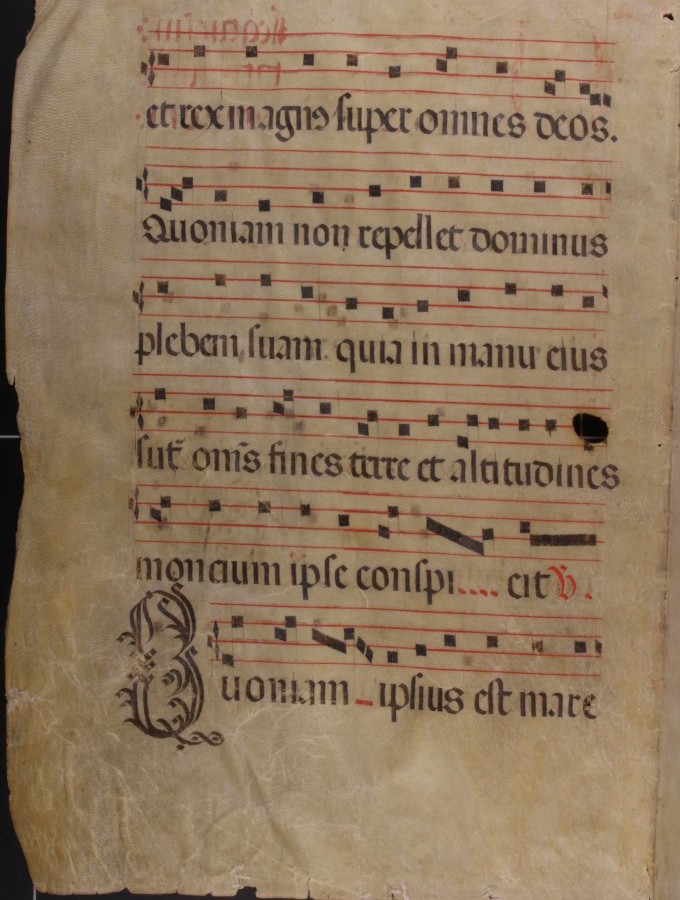 et rex magnꝰ super omnes deos.
Quoniam non repellet dominus
plebem suam quia in manu eius
sūt om̄s fines terre et altitudines
moncium ipse conspi.... cit ℣.
Quoniam ipsius est mare